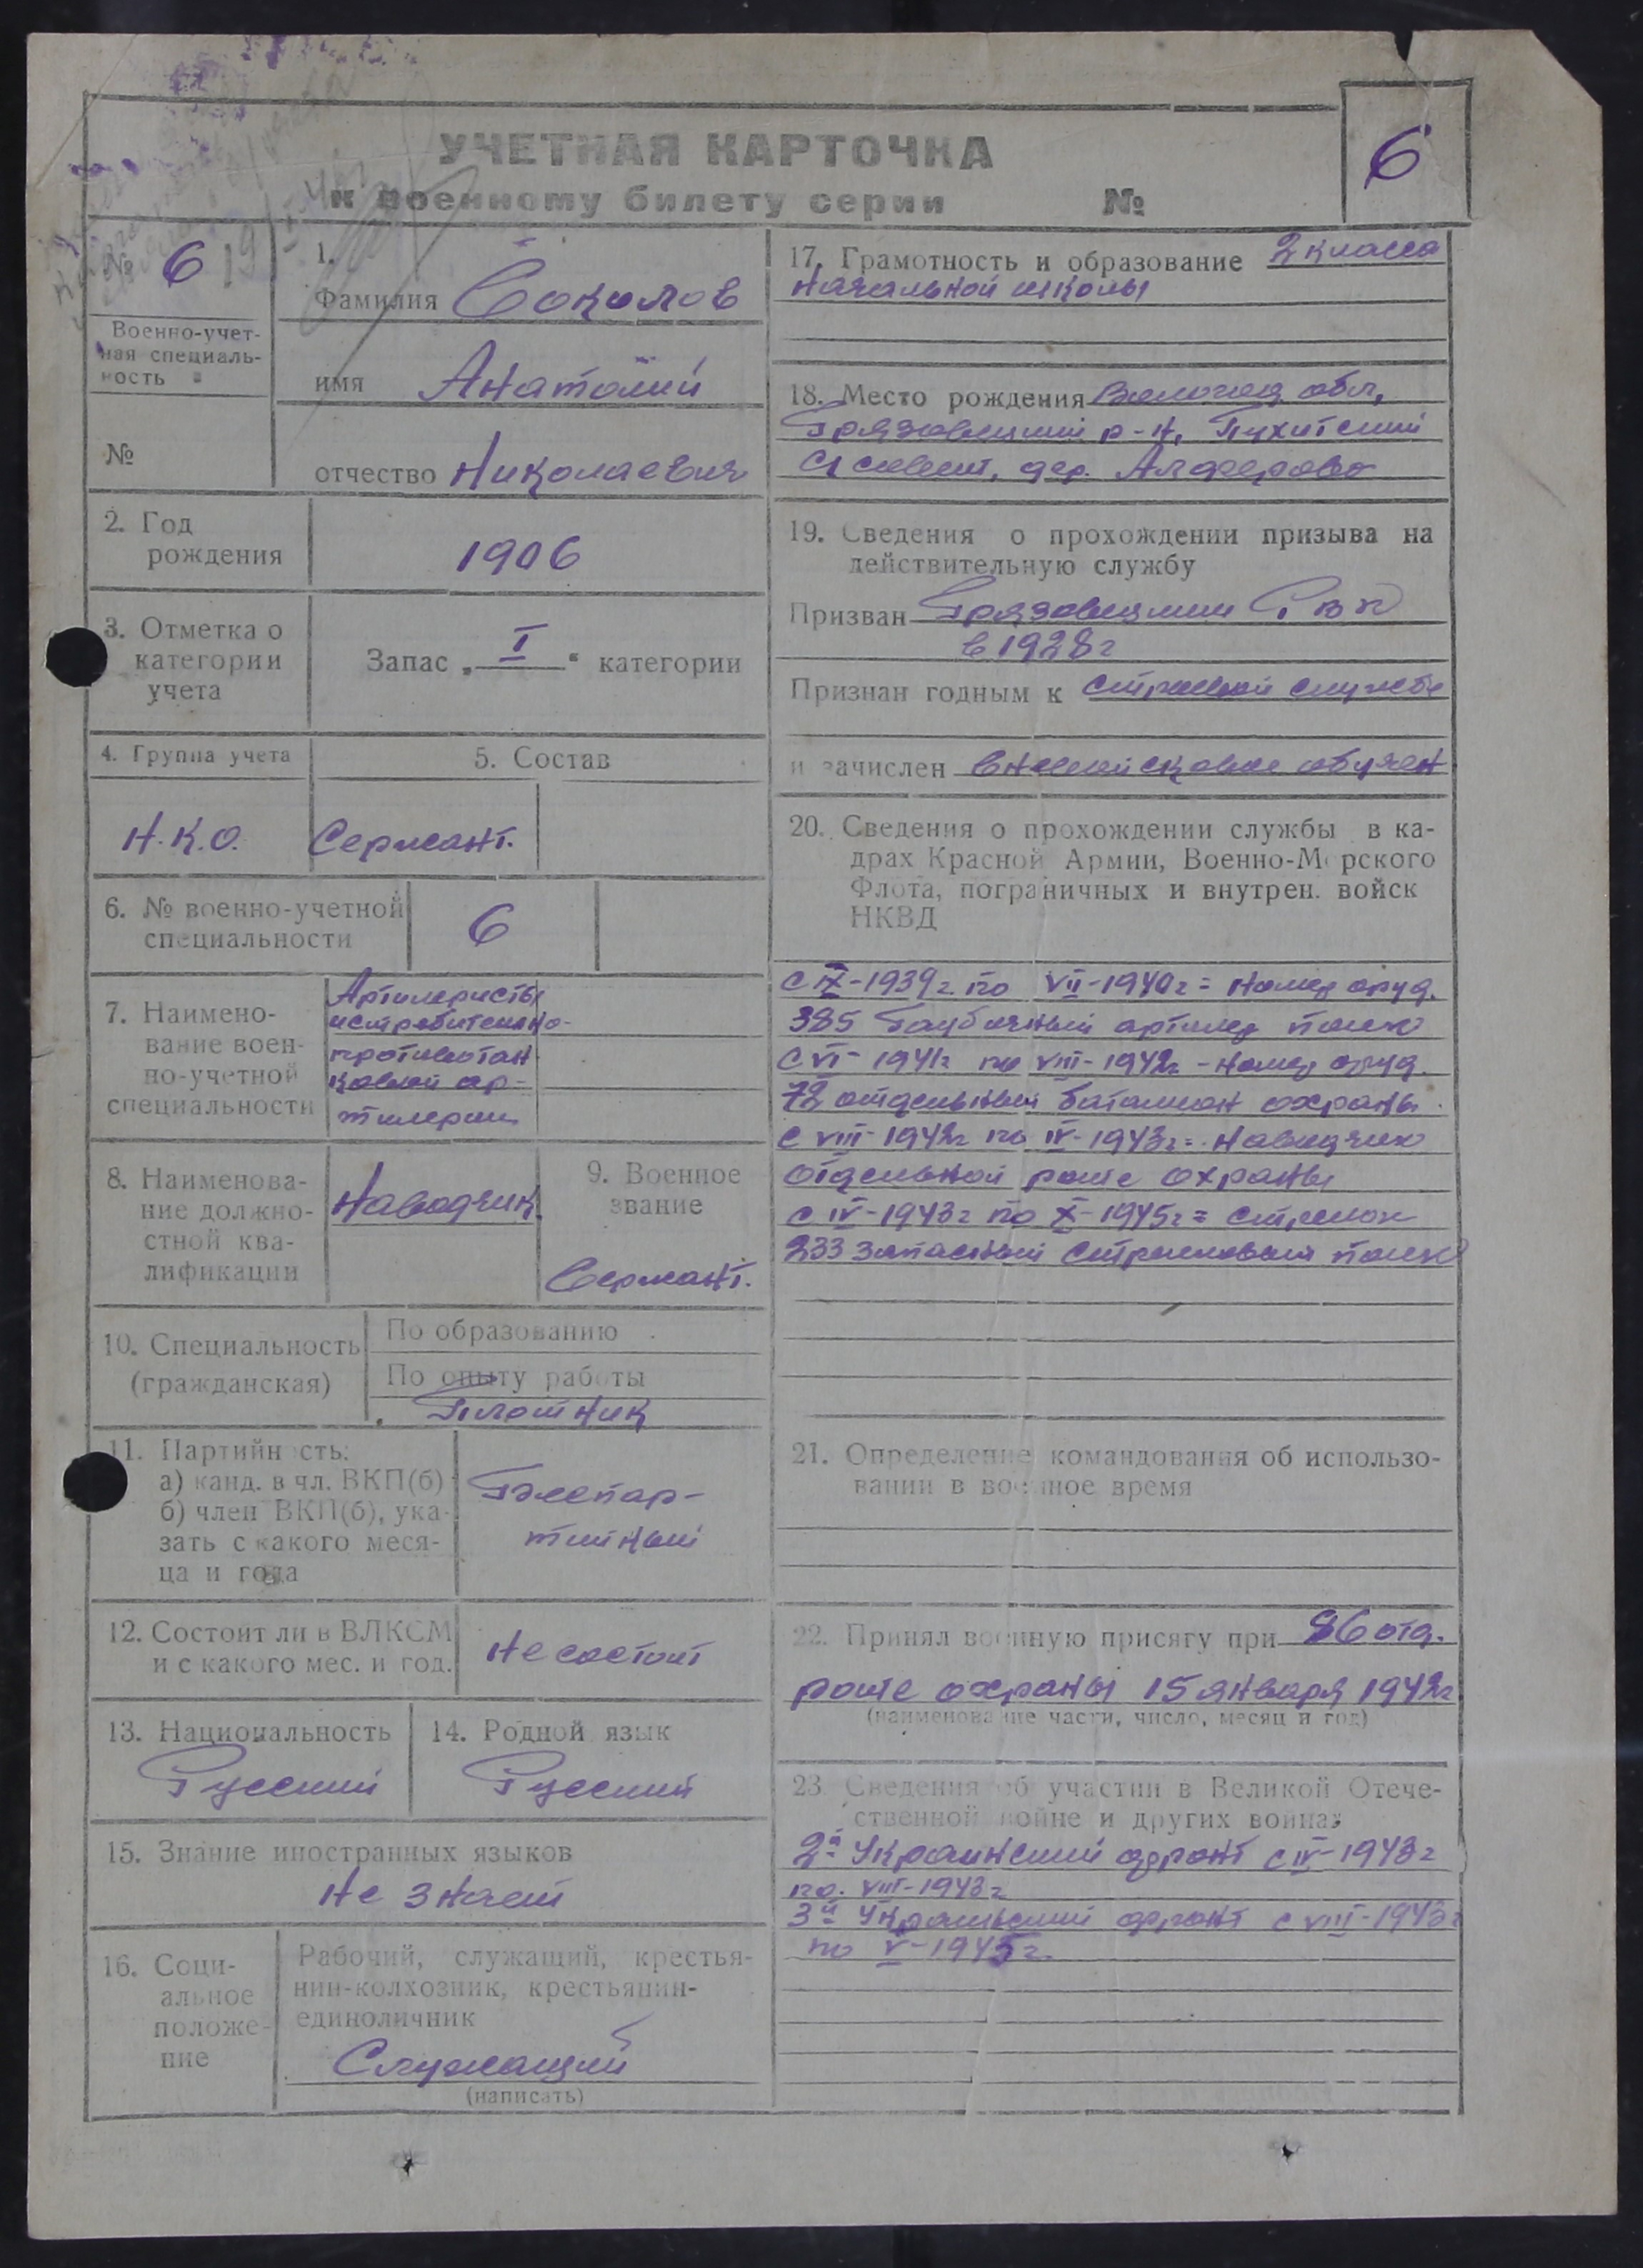 УЧЕТНАЯ КАРТОЧКА
к военному билету серии №
6
№ 6
Военно-учет-
ная специаль-
ность
№
1.
Фамилия Соколов
имя Анатолий
отчество Николаевич
2. Год
рождения
1906
3. Отметка о
категории
учета
Запас „ I “ категории
4. Группа учета
5. Состав
Н.К.О.
Сержант.
6. № военно-учетной
специальности
6
7. Наимено-
вание воен-
но-учетной
специальности
Артилеристы
истребительно-
противотан
ковой ар-
тилерии
8. Наименова-
ние должно-
стной ква-
лификации
Наводчик
9. Военное
звание
Сержант.
10. Специальность
(гражданская)
По образованию
По опыту работы
Плотник
11. Партийность:
а) канд. в чл. ВКП(б)
б) член ВКП(б), ука-
зать с какого меся-
ца и года
Беспар-
тийный
12. Состоит ли в ВЛКСМ
и с какого мес. и год.
Не состоит
13. Национальность
Русский
14. Родной язык
Русский
15. Знание иностранных языков
Не знает
16. Соци-
альное
положе-
ние
Рабочий, служащий, крестья-
нин-колхозник, крестьянин-
единоличник
Служащий
(написать)
17. Грамотность и образование 2 класса
начальной школы
18. Место рождения Вологод обл,
Грязовецкий р-н,
с/совет, дер. Алферово
19. Сведения о прохождении призыва на
действительную службу
Призван Грязовецким РВК
в 1928г
Признан годным к строевой службе
и зачислен вневойсковое обучен
20. Сведения о прохождении службы в ка-
драх Красной Армии, Военно-Морского
Флота, пограничных и внутрен. войск
НКВД
с IX-1939г по VII-1940г = номер оруд.
385 Гаубичный артилер полк
с VI-1941г по VIII-1942г - номер оруд.
72 отдельный батальон охраны.
с VIII-1942г по IV-1943г = наводчик
отдельной роте охраны
с IV-1943г по X-1945г = стрелок
233 запасный стрелковый полк
21. Определение командования об использо-
вании в военное время
22. Принял военную присягу при 86 отд.
роте охраны 15 января 1942г
(наименование части, число, месяц и год)
23. Сведения об участии в Великой Отече-
ственной войне и других войнах
2й Украинский фронт с IV-1943г
по VIII-1943г
3й Украинский фронт с VIII-1943г
по V-1945г.